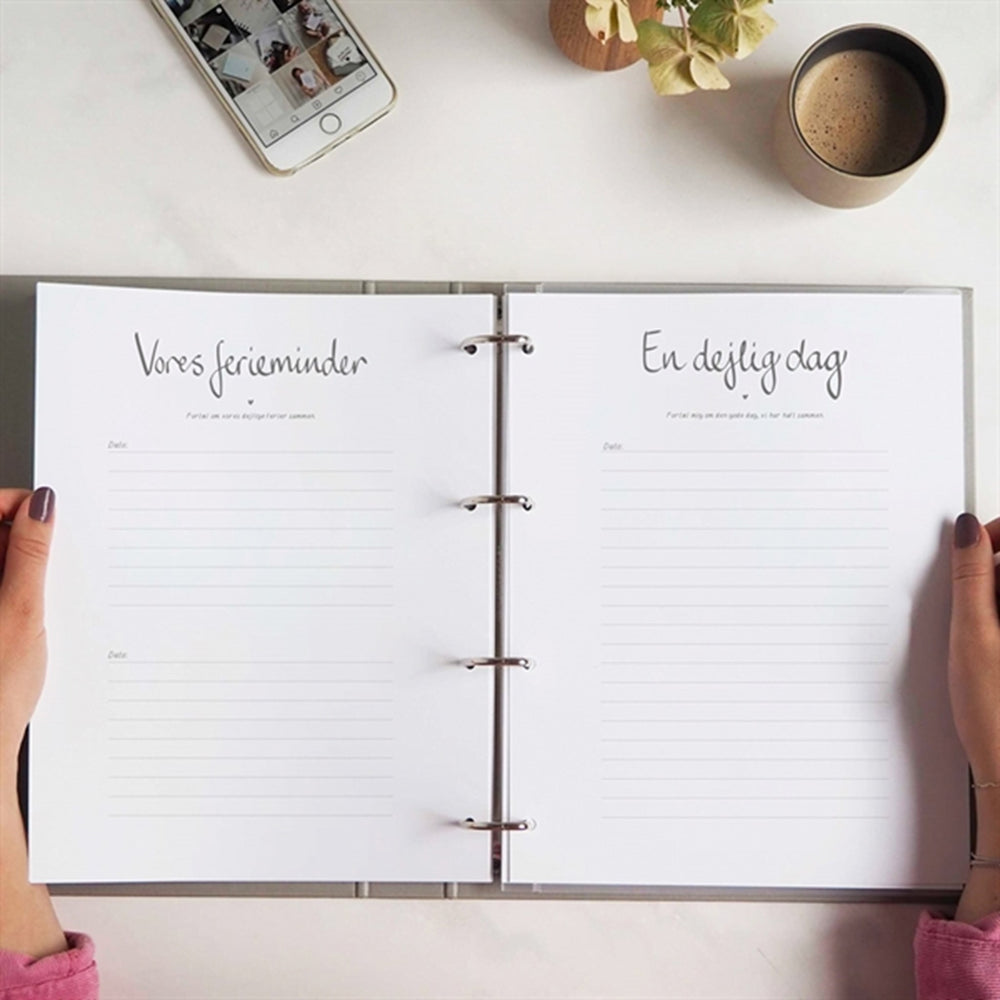 Vores ferieminder
Fortæl om vores dejlige ferier sammen.
Dato:
Dato:
En dejlig dag
Fortæl mig om den gode dag, vi har haft sammen.
Dato: